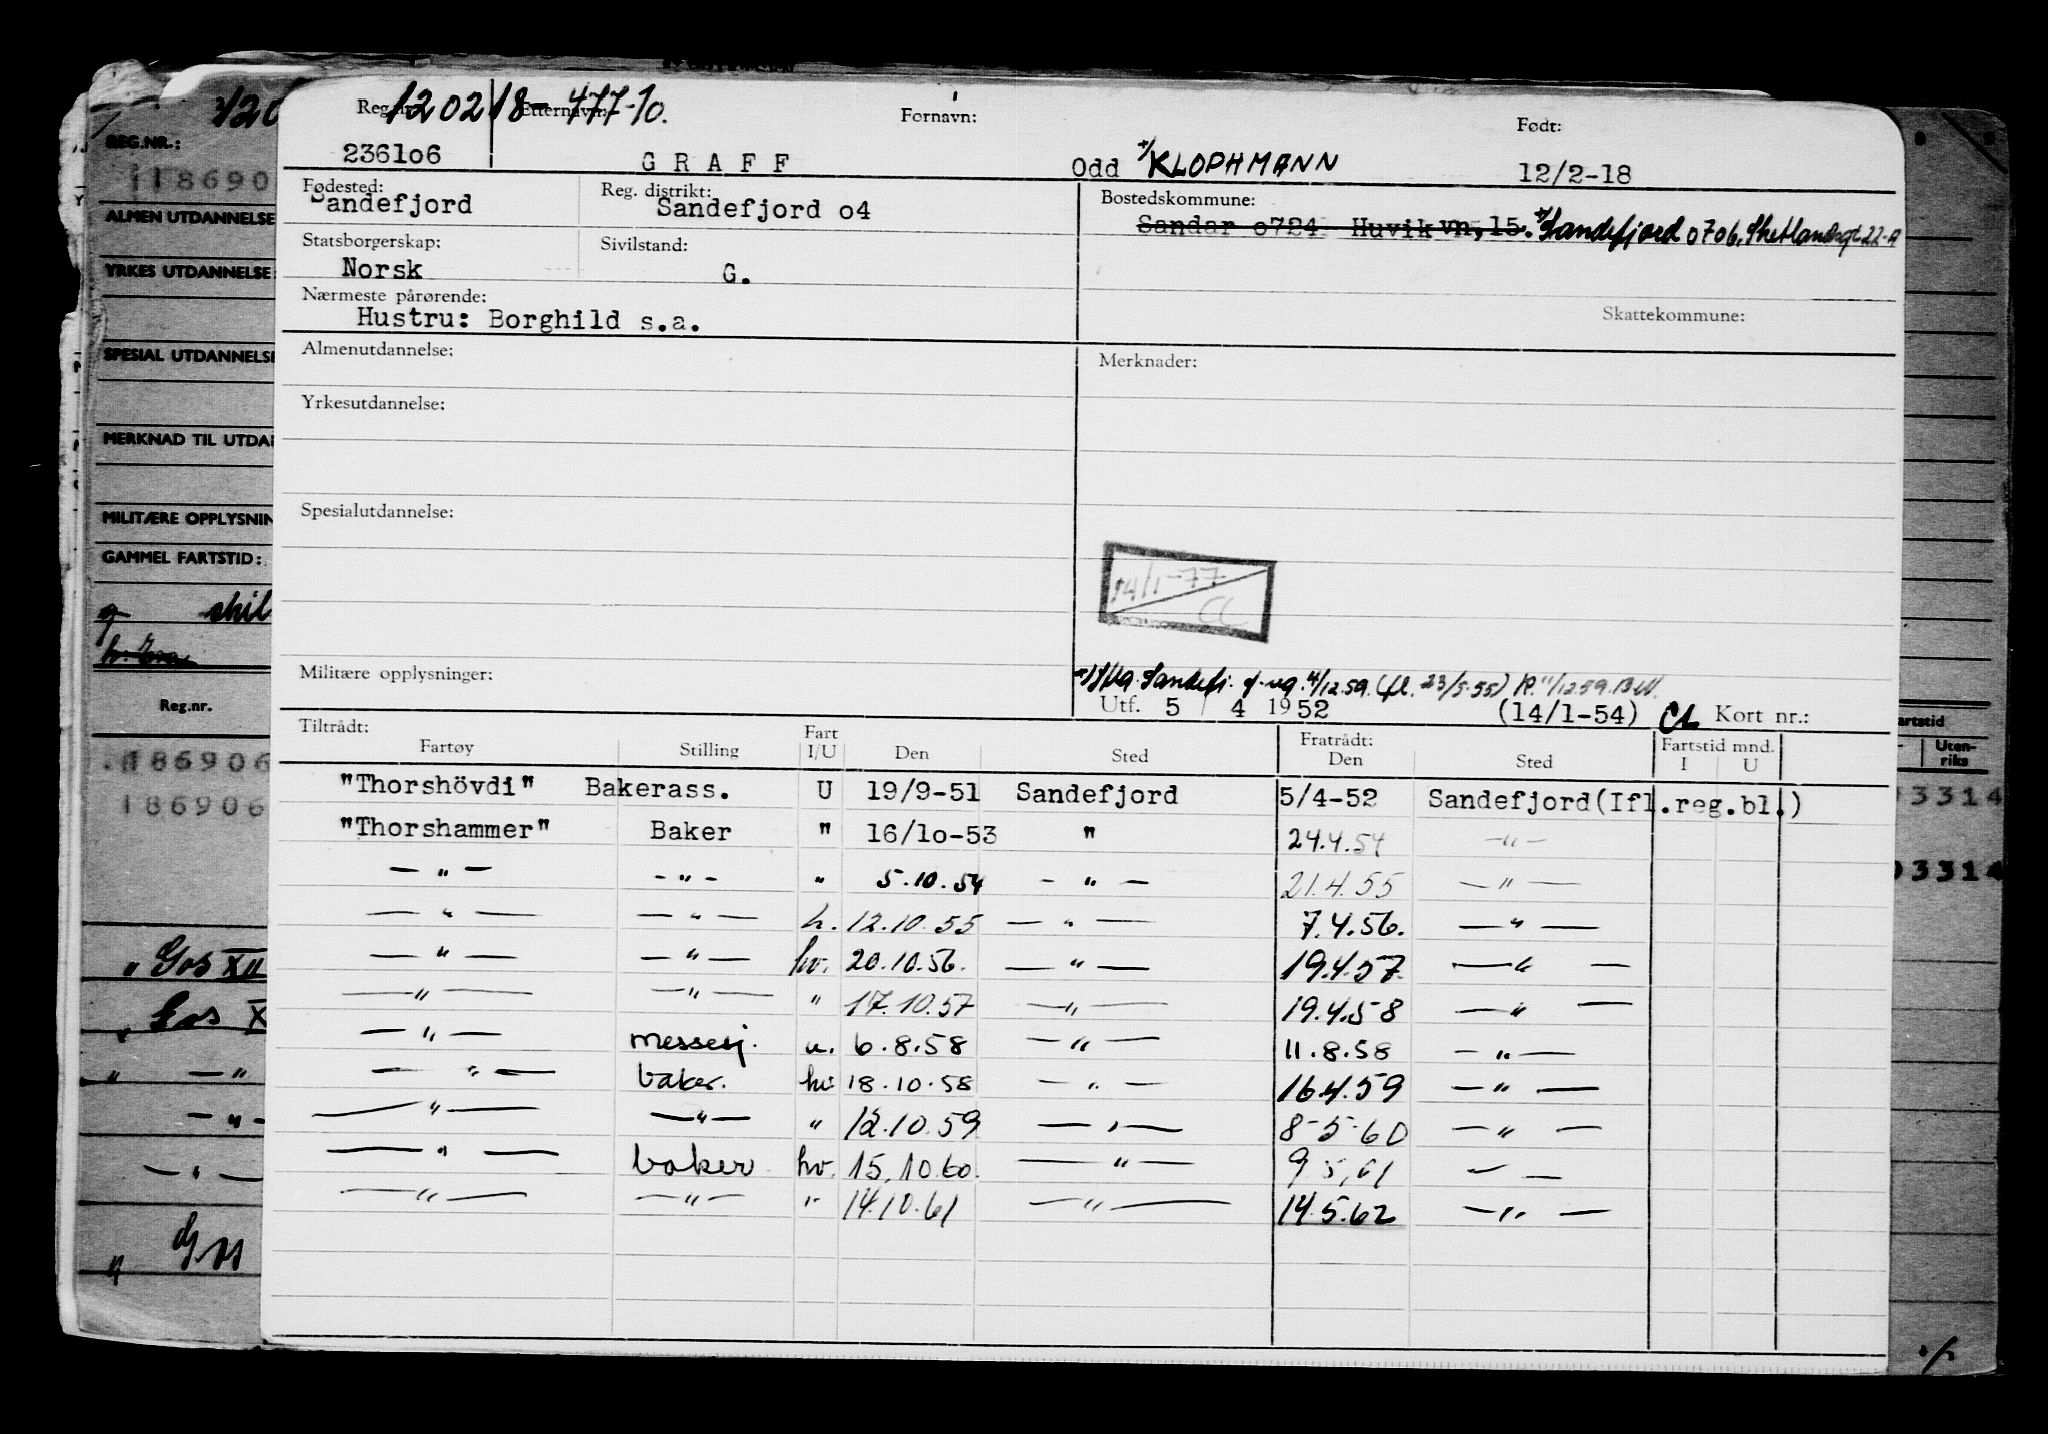 120218-477-10.
Reg.nr. Etternavn: Fornavn: Født:
236106 GRAFF Odd +/KLOPHMANN 12/2-18
Fødested: Reg. distrikt: Bostedskommune:
Sandefjord Sandefjord o4 Sandar o724 Huvik vn, 15. +/Sandefjord 0706, Shetlandsgt 22-A
Statsborgerskap: Sivilstand:
Norsk G.
Nærmeste pårørende: Skattekommune:
Hustru: Borghild s.a.
Almenutdannelse: Merknader:
Yrkesutdannelse:
Spesialutdannelse:
14/1-77
CL
Militære opplysninger:
Sandefj. 4/12.59. (fl. 23/5.55) R. 11/12.59. B.W.
Utf. 5 / 4 1952 (14/1-54) CL Kort nr.:
Tiltrådt: Fart Fratrådt: Fartstid mnd.
Fartøy Stilling I/U Den Sted Den Sted I U
"Thorshövdi" Bakerass. U 19/9-51 Sandefjord 5/4-52 Sandefjord(Ifl.reg.bl.)
"Thorshammer" Baker " 16/1o-53 " 24.4.54 — " —
— " — — " — " 5.10.54 — " — 21.4.55 — " —
— " — — " — h. 12.10.55 — " — 7.4.56. — " —
— " — — " — hv. 20.10.56. — " — 19.4.57. — " —
— " — — " — " 17.10.57 — " — 19.4.58 — " —
— " — messesj. u. 6.8.58 — " — 11.8.58 — " —
— " — baker. hv. 18.10.58 — " — 16.4.59 — " —
— " — — " — " 12.10.59 — " — 8-5-60 — " —
— " — baker hv. 15.10.60. — " — 9.5.61 — " —
— " — — " — " 14.10.61 — " — 14.5.62 — " —
REG.NR.:
186906
ALMEN UTDANNELSE
YRKES UTDANNELSE
SPESIAL UTDANNELSE
MERKNAD TIL UTDAN
MILITÆRE OPPLYSNIN
GAMMEL FARTSTID:
Reg.nr.
186906
186906
" Gos XII
" Gos X
" — "
— " —
— " —
artstid
Uten-
riks
3314
3314